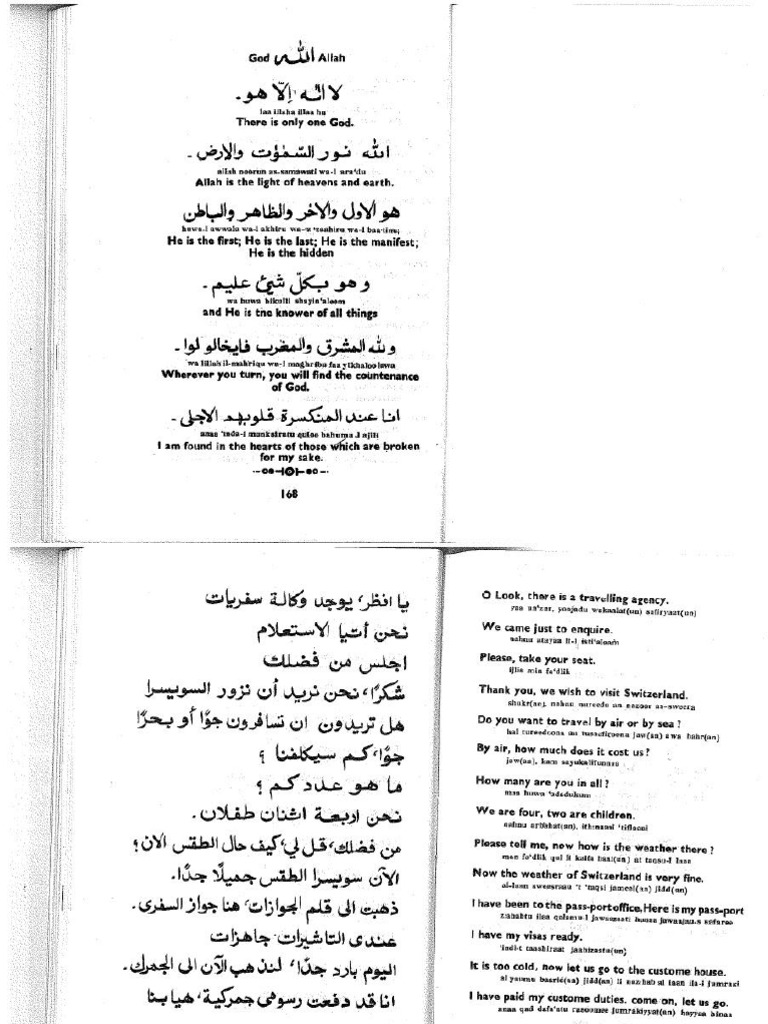 God الله Allah
لا اله إلّا هو۔
laa illaha illaa hu
There is only one God.
الله نور السّمٰوٰت والارض۔
allah noorun as-samawati wa-l ara'du
Allah is the light of heavens and earth.
هو الاول والاخر والظاهر والباطن
huwa-l awwalu wa-l akhiru
He is the first; He is the last; He is the manifest;
He is the hidden
و هو بكلّ شيئ عليم۔
wa huwa bikulli shayin'aleem
and He is the knower of all things
ولله المشرق والمغرب فايخالو لوا۔
wa lillah il-mahriqu wa-l maghribu faa yikhaloo lawa
Wherever you turn, you will find the countenance
of God.
انا عند المنكسرة قلوبهم الاجلى۔
anaa 'inda-l munksiratu
I am found in the hearts of those which are broken
for my sake.
168
يا انظر، يوجد وكالة سفريات
نحن أتيا الاستعلام
اجلس من فضلك
شكرًا، نحن نريد أن نزور السويسرا
هل تريدون ان تسافرون جوًّا أو بحرًا
جوًّا، كم سيكلفنا ؟
ما هو عددكم ؟
نحن اربعة اثنان طفلان.
من فضلك، قل لي، كيف حال الطقس الان؟
الآن سويسرا الطقس جميلًا جدًا.
ذهبت الى قلم الجوازات، هنا جواز السفرى.
عندى التاشيرات جاهزات
اليوم بارد جدًا، لنذهب الآن الى الجمرك.
انا قد دفعت رسومى جمركية، هيا بنا
O Look, there is a travelling agency.
yaa un'zur, yoojadu wakaalat(un) safiryaat(un)
We came just to enquire.
nahnu atayaa li-l isti'alaam
Please, take your seat.
ijlis min fa'dlik
Thank you, we wish to visit Switzerland.
shukr(an), nahnu nureedu an nazoor as-sweera
Do you want to travel by air or by sea ?
hal tureedoona an tusaafiroona jaw(an) awa bahr(an)
By air, how much does it cost us ?
jaw(an), kam sayukalifunaa
How many are you in all ?
maa huwa 'adadukum
We are four, two are children.
nahnu arbhhat(un), ithnaani 'tiflaani
Please tell me, now how is the weather there ?
man fa'dlik qul li kaifa haal(un)
Now the weather of Switzerland is very fine.
al-laan sweesraa 't 'taqsi jameel(an) jidd(an)
I have been to the pass-port office, Here is my pass-port
I have my visas ready.
'indi-t taashiraat jaahizaatu(un)
It is too cold, now let us go to the custome house.
al yauma baarid(un) jidd(an) li nazhab al laan ila-l jumraki
I have paid my custome duties. come on, let us go.
anaa qad dafa'atu rasoomee jumrakiyyat(an) hayyaa binaa